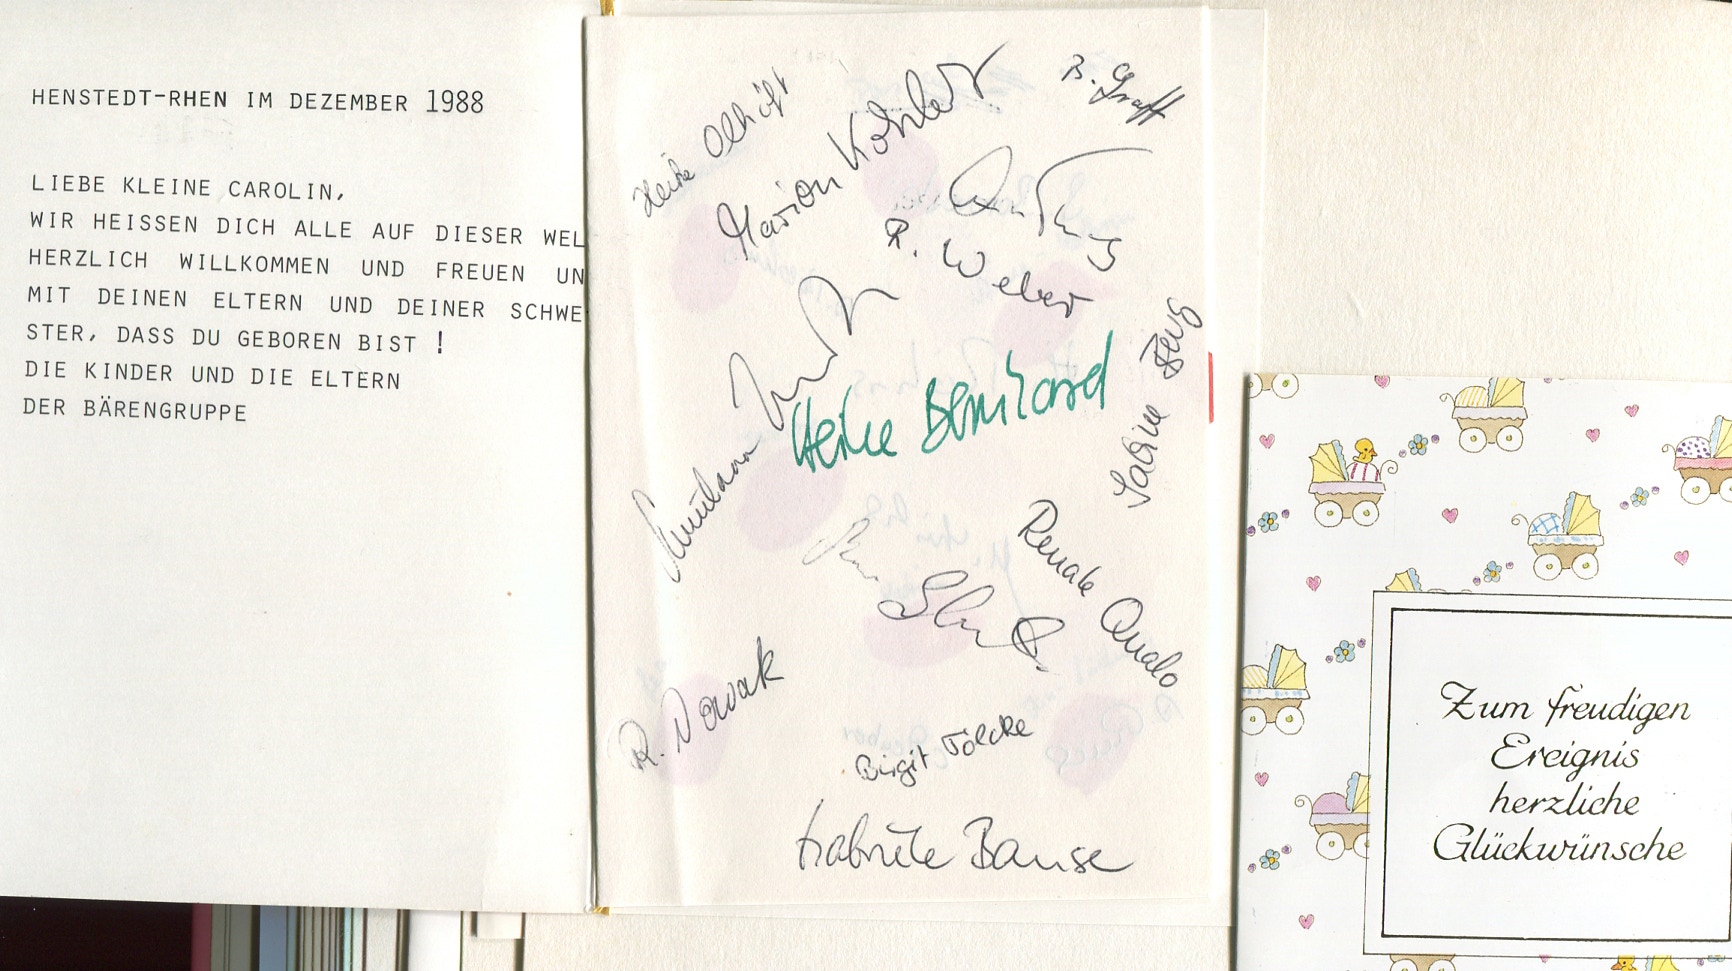 HENSTEDT-RHEN IM DEZEMBER 1988
LIEBE KLEINE CAROLIN,
WIR HEISSEN DICH ALLE AUF DIESER WEL
HERZLICH WILLKOMMEN UND FREUEN UN
MIT DEINEN ELTERN UND DEINER SCHWE
STER, DASS DU GEBOREN BIST !
DIE KINDER UND DIE ELTERN
DER BÄRENGRUPPE
Heike
Marion
B. Graff
R. Weber
Heike Bernhard
Sabine
Renate
R. Nowak
Birgit Tölcke
Gabriele Banse
Zum freudigen
Ereignis
herzliche
Glückwünsche